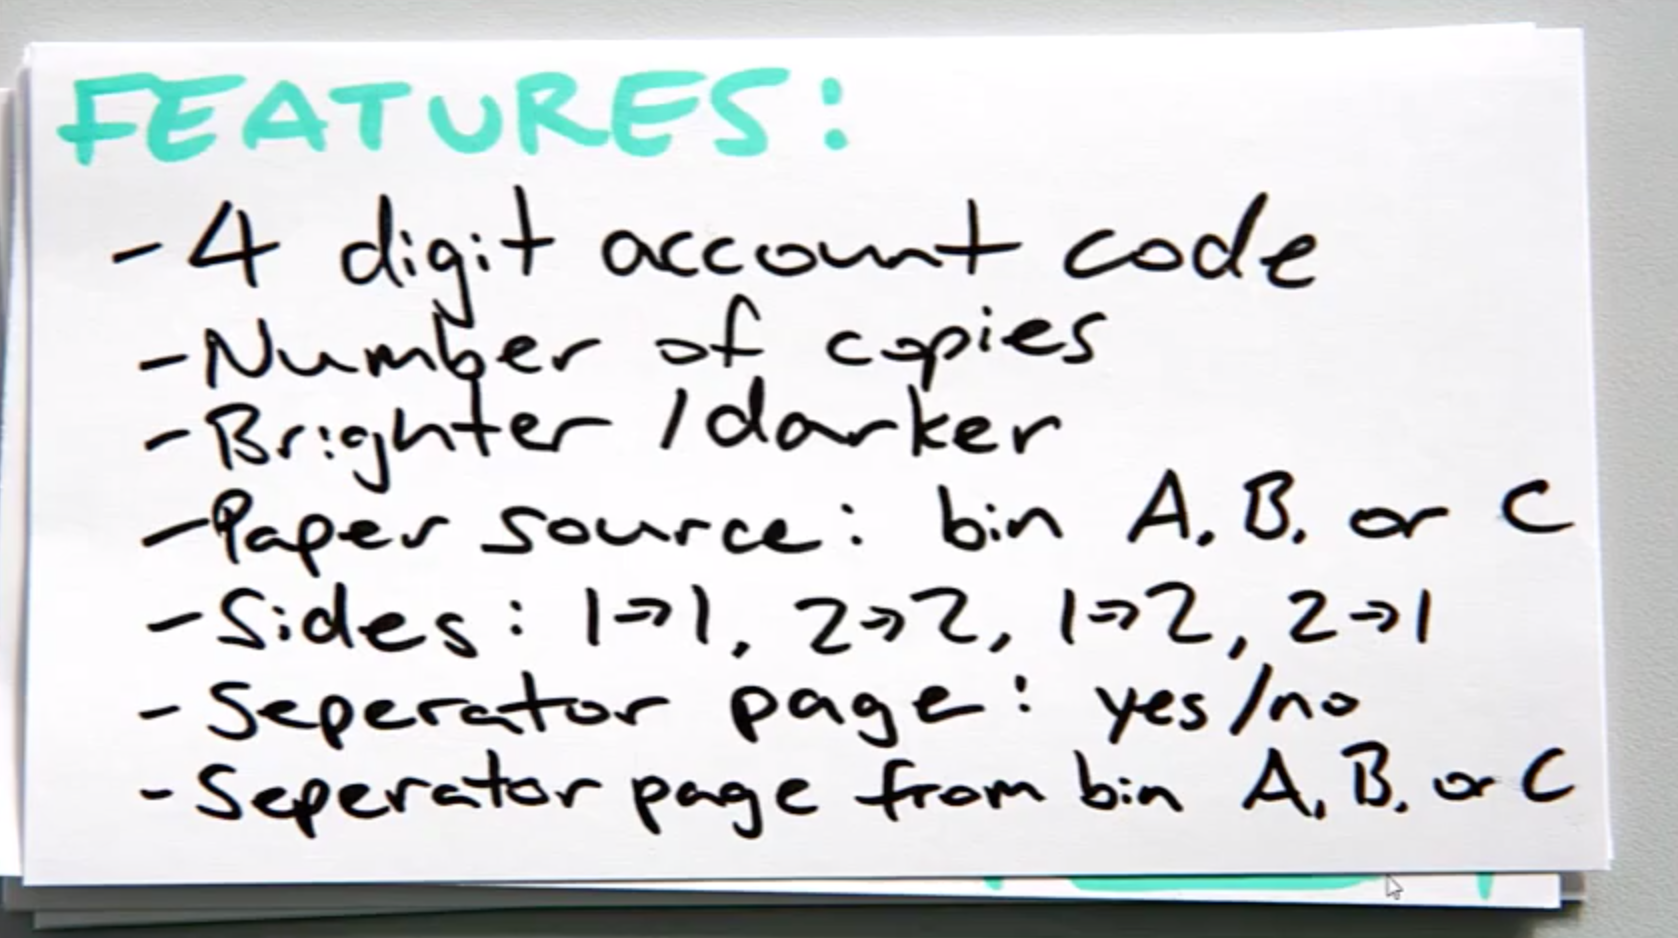 FEATURES:
- 4 digit account code
- Number of copies
- Brighter / darker
- Paper source: bin A, B, or C
- Sides: 1→1, 2→2, 1→2, 2→1
- Seperator page: yes/no
- Seperator page from bin A, B, or C